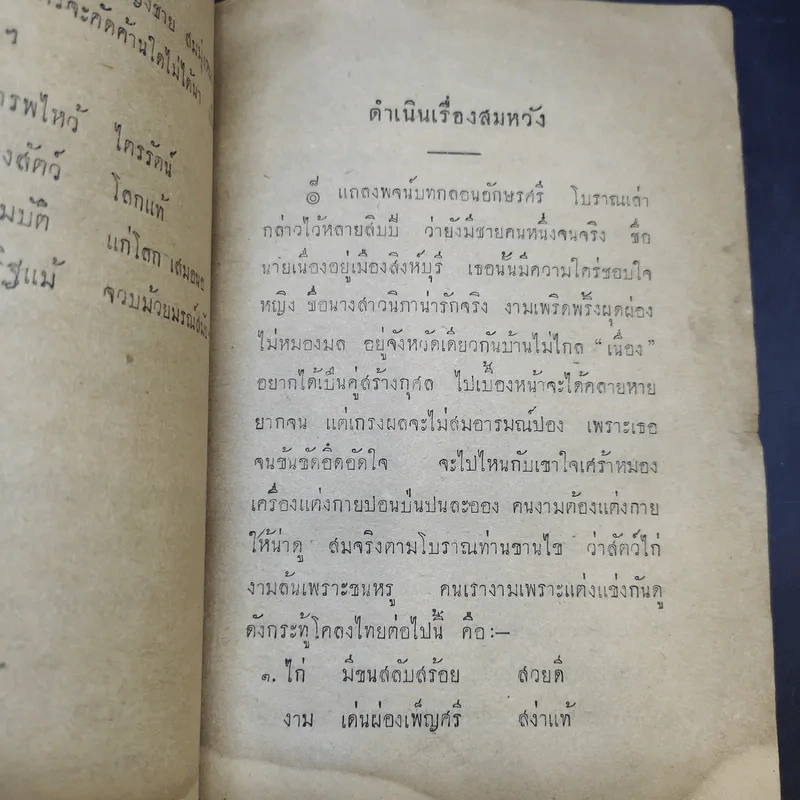 งชาย สมมุ
จะคัดค้านใดไม่ได้นา
ๆ
รพไหว้ ไตรรัตน์
งสัตว์ โลกแท้
มบัติ แก่โลก เสมอนอ
แม้ จวบม้วยมรณ์
ดำเนินเรื่องสมหวัง
๏ แถลงพจน์บทกลอนอักษรศรี โบราณเล่า
กล่าวไว้หลายสิบปี ว่ายังมีชายคนหนึ่งจนจริง ชื่อ
นายเนื่องอยู่เมืองสิงห์บุรี เธอนั้นมีความใคร่ชอบใจ
หญิง ชื่อนางสาวนิภาน่ารักจริง งามเพริดพริ้งผุดผ่อง
ไม่หมองมล อยู่จังหวัดเดียวกันบ้านไม่ไกล “เนื่อง”
อยากได้เป็นคู่สร้างกุศล ไปเบื้องหน้าจะได้คลายหาย
ยากจน แต่เกรงผลจะไม่สมอารมณ์ปอง เพราะเธอ
จนข้นขัดอึดอัดใจ จะไปไหนกับเขาใจเศร้าหมอง
เครื่องแต่งกายปอนป่นปนละออง คนงามต้องแต่งกาย
ให้น่าดู สมจริงตามโบราณท่านขานไข ว่าสัตว์ไก่
งามล้นเพราะขนหรู คนเรางามเพราะแต่งแข่งกันดู
ดังกระทู้โคลงไทยต่อไปนี้ คือ:—
๑. ไก่ มีขนสลับสร้อย สวยดี
งาม เด่นผ่องเพ็ญศรี สง่าแท้